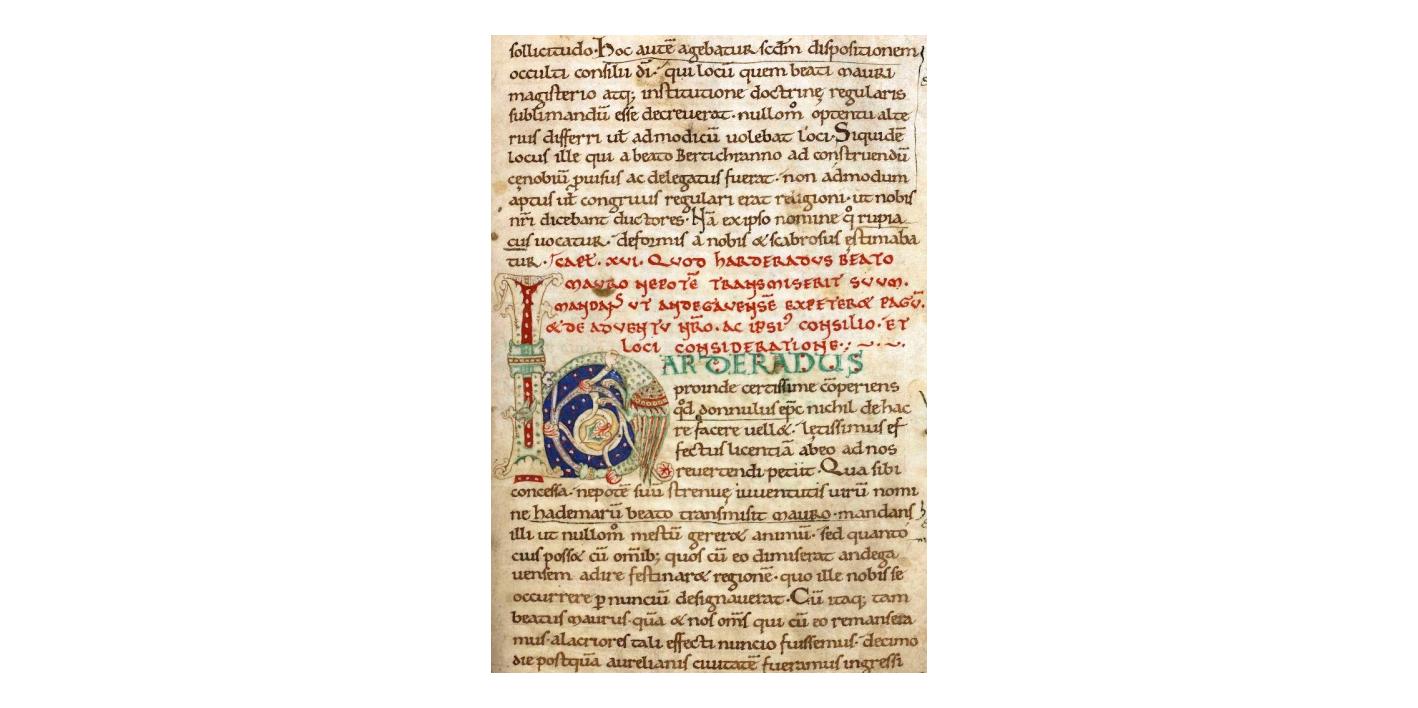 sollicitudo. Hoc autē agebatur scdm̄ dispositionem
occulti consilii dī. qui locū quem beati mauri
magisterio atq; institutione doctrinę regularis
sublimandū esse decreuerat. nullom̊ optentu alte
rius differri ut̄ admodicū uolebat loci. Siquidē
locus ille qui a beato Bertichranno ad construendū
cęnobiū puisus ac delegatus fuerat. non admodum
aptus ut̄ congruus regulari erat religioni. ut nobis
nr̄i dicebant ductores. Nā ex ipso nomine q̊ rupia
cus uocatur. deformis a nobis & scabrosus ęstimaba
tur. CAPT. XVI. QUOD HARDERADUS BEATO
MAURO NEPOTĒ TRANSMISERIT SUUM.
MANDANS UT ANDEGAVENSĒ EXPETER& PAGŪ.
& DE ADVENTU NR̄O. AC IPSI᾽ CONSILIO. ET
LOCI CONSIDERATIONE.
HARDERADUS
proinde certissime cōperiens
qd̄ donnulus epc̄ nichil de hac
re facere uell&. lętissimus ef
fectus licentiā abeo ad nos
reuertendi petiit. Qua sibi
concessa. nepotē suū strenuę iuuentutis uirū nomi
ne hademarū beato transmisit mauro. mandans
illi ut nullom̊ mestū gerer& animū. sed quanto
cius poss& cū om̄ib; quos cū eo dimiserat andega
uensem adire festinar& regionē. quo ille nobis se
occurrere p nunciū designauerat. Cū itaq; tam
beatus maurus. quā & nos om̄s qui cū eo remansera
mus. alacriores tali effecti nuncio fuissemus. decimo
die postquā aurelianis ciuitatē fueramus ingressi